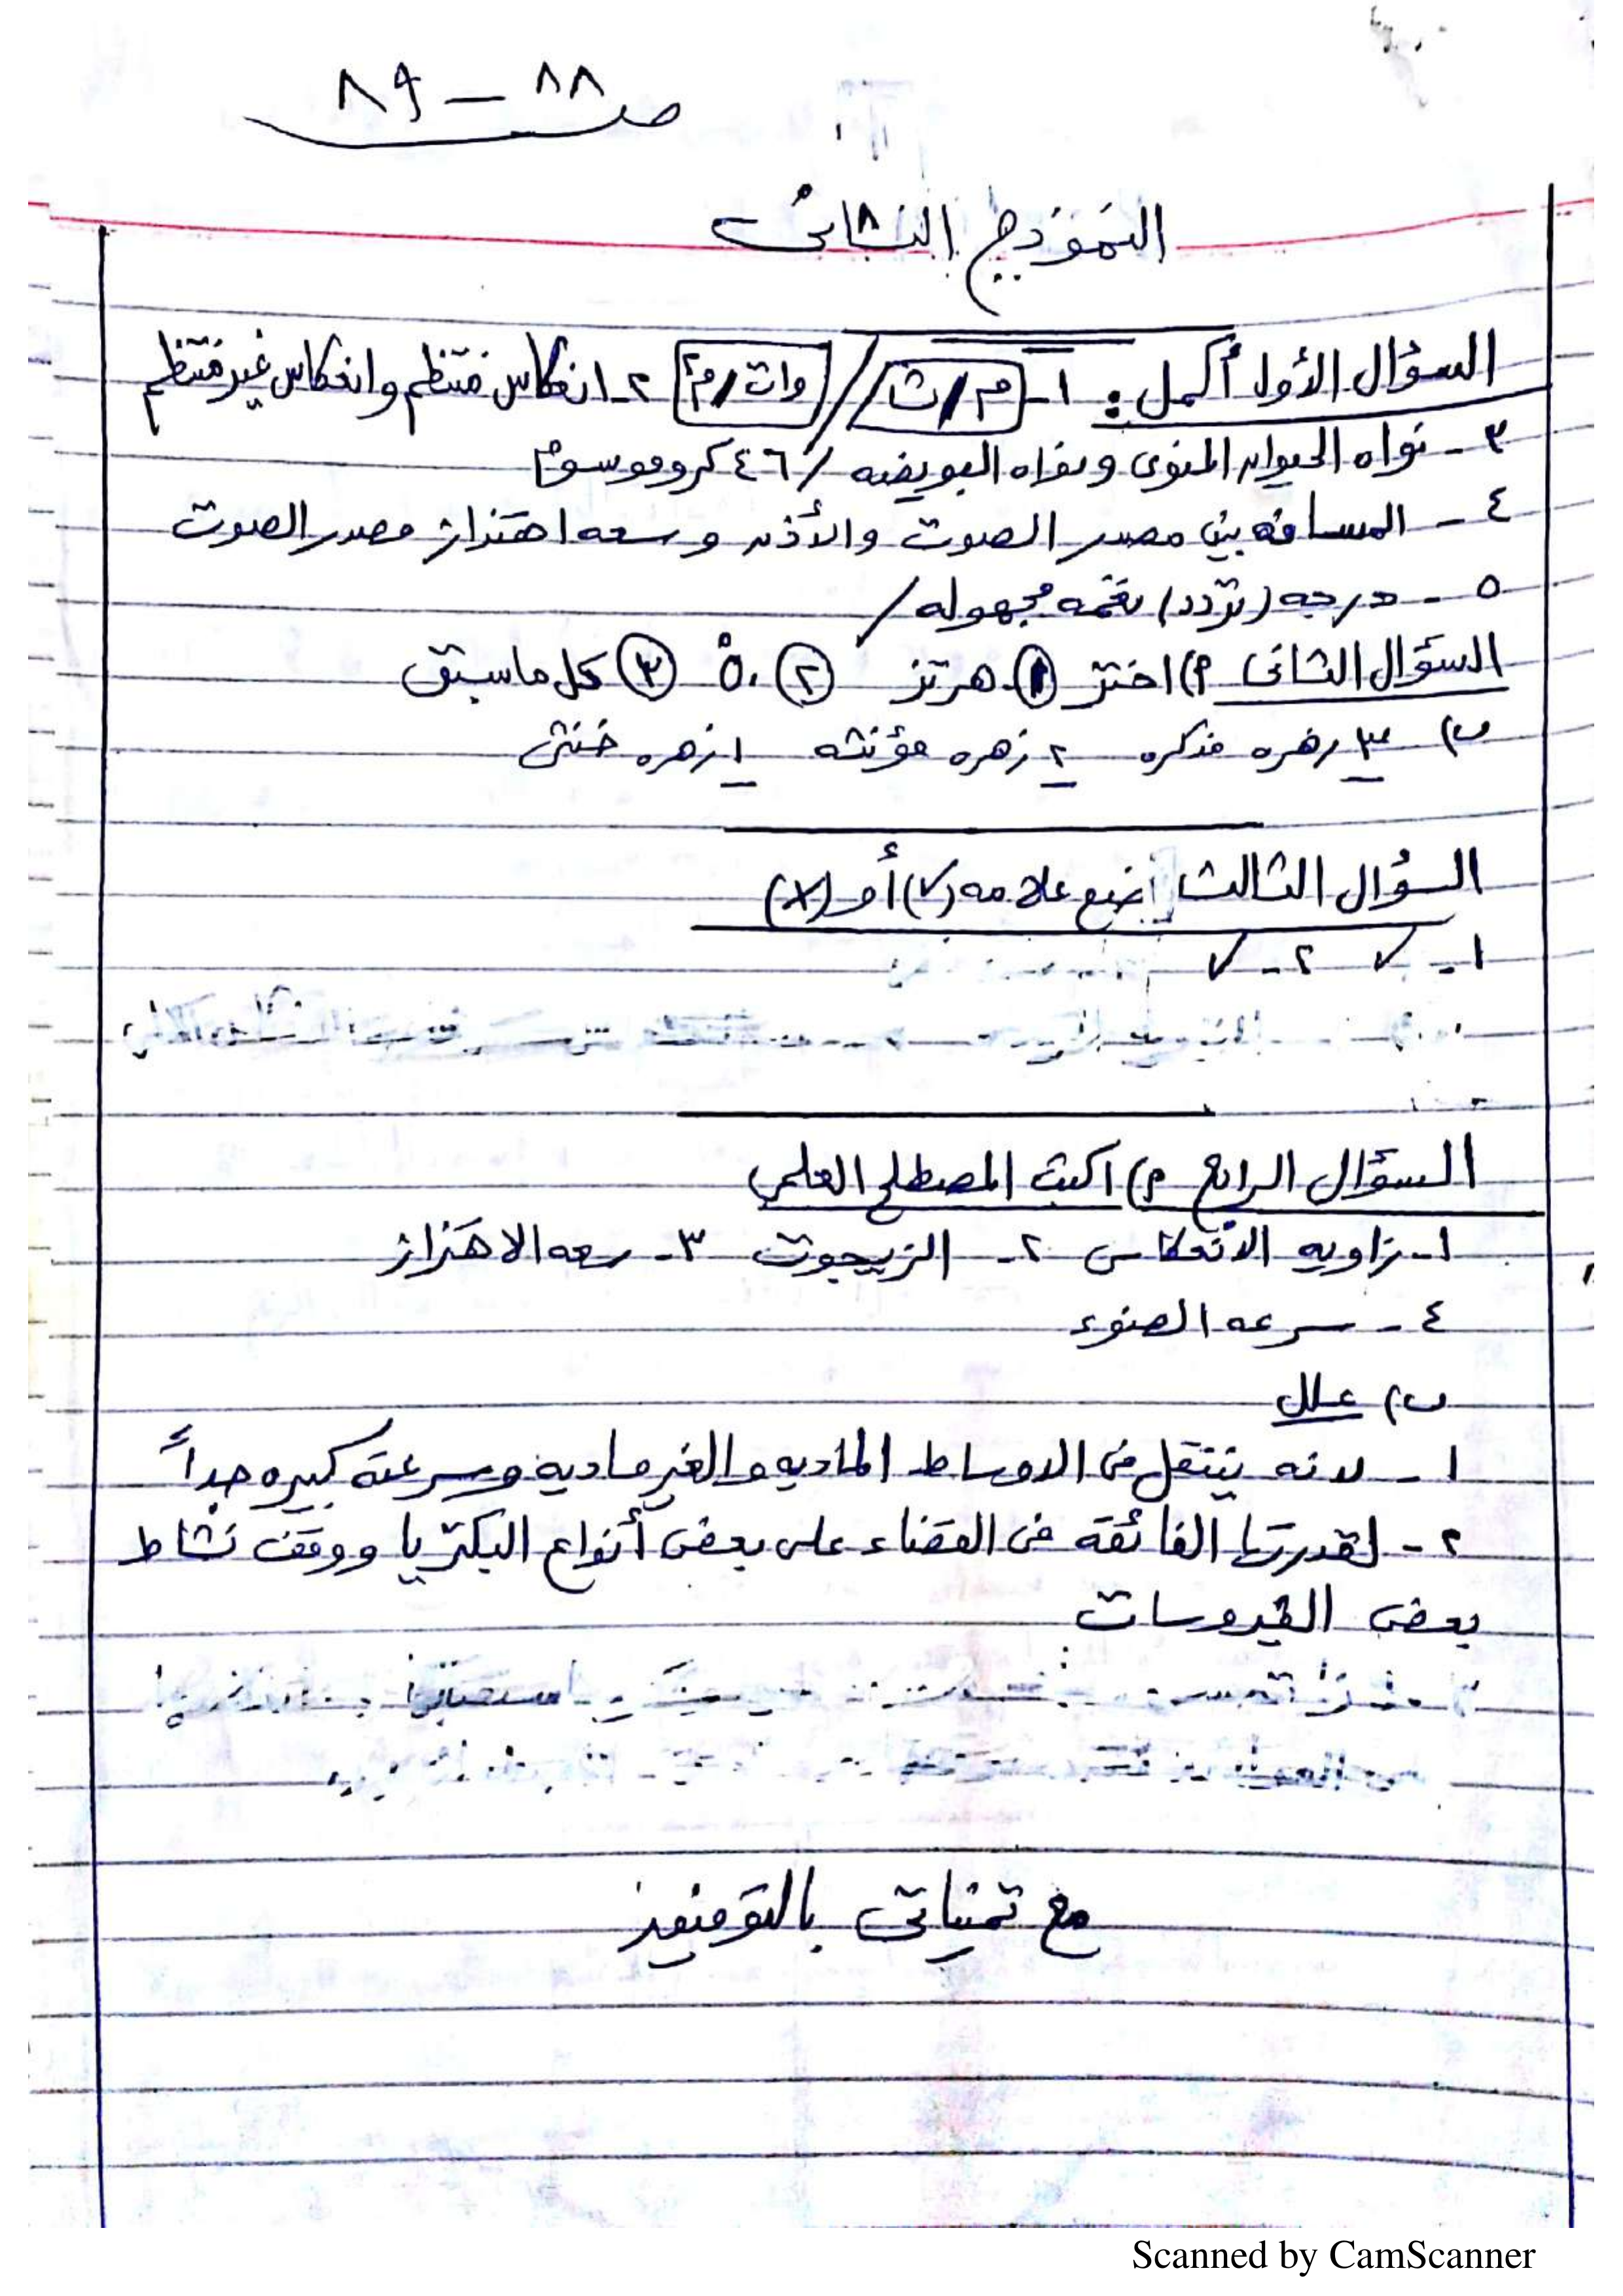 ص ٨٨ - ٨٩
النموذج الثانى
السؤال الأول أكمل : ١- م/ث / وات/م٢ ٢- انعكاس منتظم وانعكاس غير منتظم
٣- نواه الحيوان المنوى ونواه البويضه / ٤٦ كروموسوم
٤- المسافه بين مصدر الصوت والأذن وسعه اهتزاز مصدر الصوت
٥- درجه (تردد) نغمه مجهوله /
السؤال الثانى م) اختر ١ هرتز ٢ ٥٠° ٣ كل ماسبق
ب) ٣ زهره مذكره ٢ زهره مؤنثه ١ زهره خنثى
السؤال الثالث أضع علامه (✓) أو (×)
١- ✓ ٢- ✓
السؤال الرابع م) اكتب المصطلح العلمى
١- زاويه الانعكاس ٢- الزيجوت ٣- سعه الاهتزاز
٤- سرعه الضوء
ب) علل
١- لانه ينتقل فى الاوساط الماديه والغير ماديه وسرعته كبيره جداً
٢- لقدرتها الفائقه فى القضاء على بعض أنواع البكتريا ووقف نشاط
بعض الفيروسات
مع تمنياتى بالتوفيق
Scanned by CamScanner